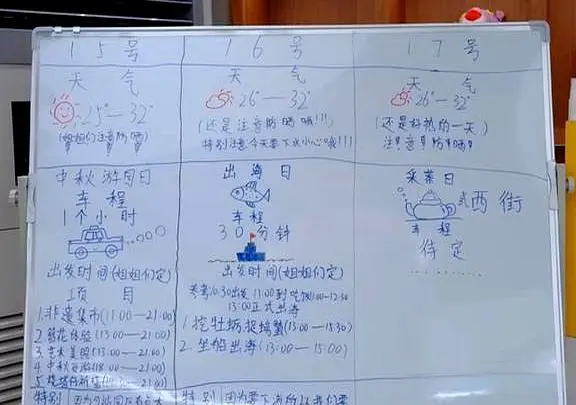 15号
天气
25°—32°
(姐姐们注意防晒)
中秋游园日
车程
1个小时
出发时间(姐姐们定)
项目
1.非遗集市(11:00—21:00)
2.簪花体验(13:00—21:00)
3.艺术美照(13:00—21:00)
4.中秋夜游(18:00—21:00)
特别
16号
天气
26°—32°
(还是注意防晒哦!!!
特别注意今天要下水小心哦!!!)
出海日
车程
30分钟
出发时间(姐姐们定)
参考10:30出发 11:00到吃饭11:00-12:30
13:00正式出海
1.挖牡蛎捉螃蟹(13:00—15:30)
2.坐船出海(13:00—15:00)
特别 因为要下海所以我们要
17号
天气
26°—32°
(还是好热的一天)
注意防晒
采茶日
或西街
车程
待定